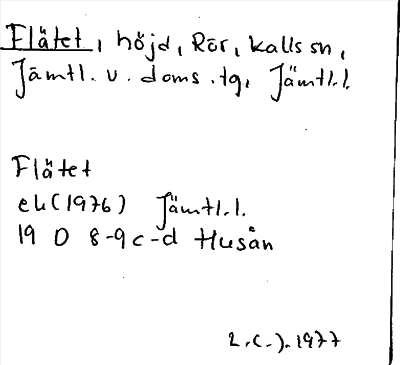 Flätet, höjd, Rör, Kalls sn,
Jämtl. v. doms. tg, Jämtl.l.
Flätet
ek (1976) Jämtl.l.
19 D 8-9 c-d Husån
1977